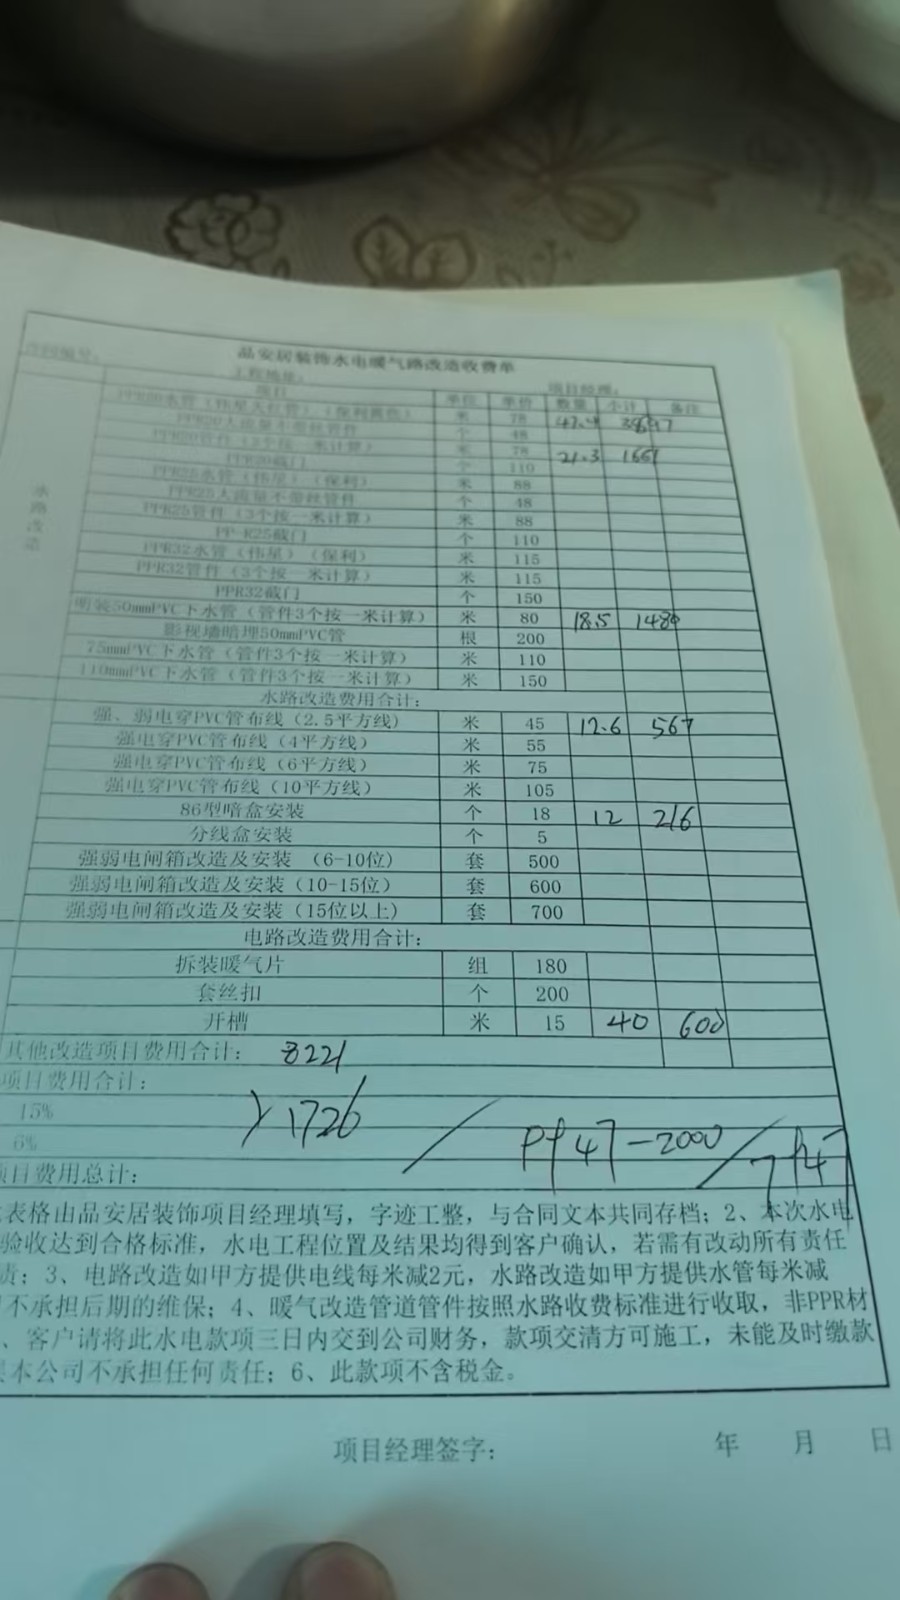 品安居装饰水电暖气路改造收费单
合同编号: 工程地址: 项目经理:
项目 单位 单价 数量 小计 备注
水路改造
米 78 47.4 3697
PPR20大流量不带丝管件 个 48
PPR20管件(3个按一米计算) 米 78 21.3 1661
PPR20截门 个 110
PPR25水管(伟星)(保利) 米 88
PPR25大流量不带丝管件 个 48
PPR25管件(3个按一米计算) 米 88
PP-R25截门 个 110
PPR32水管(伟星)(保利) 米 115
PPR32管件(3个按一米计算) 米 115
PPR32截门 个 150
明装50mmPVC下水管(管件3个按一米计算) 米 80 18.5 1480
影视墙暗埋50mmPVC管 根 200
75mmPVC下水管(管件3个按一米计算) 米 110
110mmPVC下水管(管件3个按一米计算) 米 150
水路改造费用合计:
强、弱电穿PVC管布线(2.5平方线) 米 45 12.6 567
强电穿PVC管布线(4平方线) 米 55
强电穿PVC管布线(6平方线) 米 75
强电穿PVC管布线(10平方线) 米 105
86型暗盒安装 个 18 12 216
分线盒安装 个 5
强弱电闸箱改造及安装 (6-10位) 套 500
强弱电闸箱改造及安装(10-15位) 套 600
强弱电闸箱改造及安装(15位以上) 套 700
电路改造费用合计:
拆装暖气片 组 180
套丝扣 个 200
开槽 米 15 40 600
其他改造项目费用合计: 8221
项目费用合计:
15% 1726
6% 47-2000
项目费用总计:
表格由品安居装饰项目经理填写,字迹工整,与合同文本共同存档;2、本次水电
验收达到合格标准,水电工程位置及结果均得到客户确认,若需有改动所有责任
责;3、电路改造如甲方提供电线每米减2元,水路改造如甲方提供水管每米减
不承担后期的维保;4、暖气改造管道管件按照水路收费标准进行收取,非PPR材
、客户请将此水电款项三日内交到公司财务,款项交清方可施工,未能及时缴款
本公司不承担任何责任;6、此款项不含税金。
项目经理签字: 年 月 日